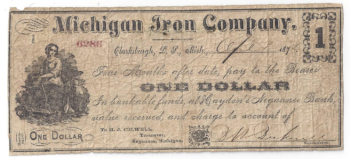 Michigan Iron Company,
1
6298
Clarksburgh, L. S., Mich., April 187
Four Months after date, pay to the Bearer
ONE DOLLAR
In bankable funds, at Hayden's Negaunee Bank,
value received and charge to account of
ONE DOLLAR
To H. J. COLWELL,
Treasurer,
Negaunee, Michigan.